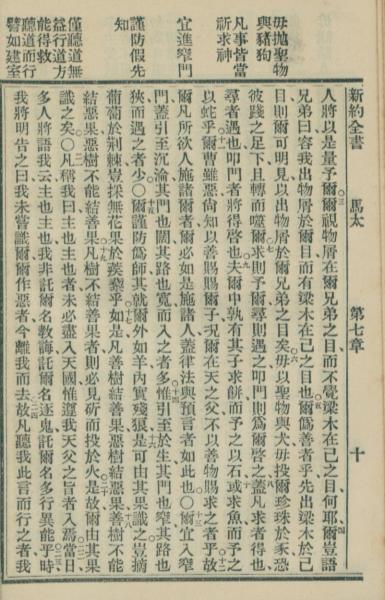 毋抛聖物
與豬狗
凡事皆當
祈求神
宜進窄門
謹防假先
知
僅聽道無
益行道方
能得救
聽道而行
譬如建室
新約全書 馬太 第七章 十
人將以是量予爾爾視物屑在爾兄弟之目而不覺梁木在己之目何耶爾豈語
兄弟曰容我出物屑於爾目而有梁木在己之目也爾僞善者乎先出梁木於己
目則爾可明見以出物屑於爾兄弟之目矣毋以聖物與犬毋投爾珍珠於豕恐
彼踐之足下且轉而噬爾求則予爾尋則遇之叩門則爲爾啓之蓋凡求者得也
尋者遇也叩門者將得啓也夫爾中孰有其子求餅而予之以石或求魚而予之
以蛇乎爾曹雖惡尙知以善賜賜爾子況爾在天之父不以善物賜求之者乎故
爾凡所欲人施諸爾者爾必如是施諸人蓋律法與預言者如此也〇爾宜入窄
門蓋引至沉淪其門也闊其路也寬而入之者多惟引至於生其門也窄其路也
狹而遇之者少〇爾謹防僞師其就爾外如羊內實殘狼是可由其果識之豈摘
葡萄於荊棘豈採無花果於蒺藜乎如是凡善樹結善果惡樹結惡果善樹不能
結惡果惡樹不能結善果凡樹不結善果者則必見斫而投於火是故爾由其果
識之矣〇凡稱我曰主也主也者未必盡入天國惟遵我天父之旨者入焉當日
多人將語我云主也主也我非託爾名教誨託爾名逐鬼託爾名多行異能乎時
我將明告之曰我未嘗識爾爾作惡者今離我而去故凡聽我此言而行之者我